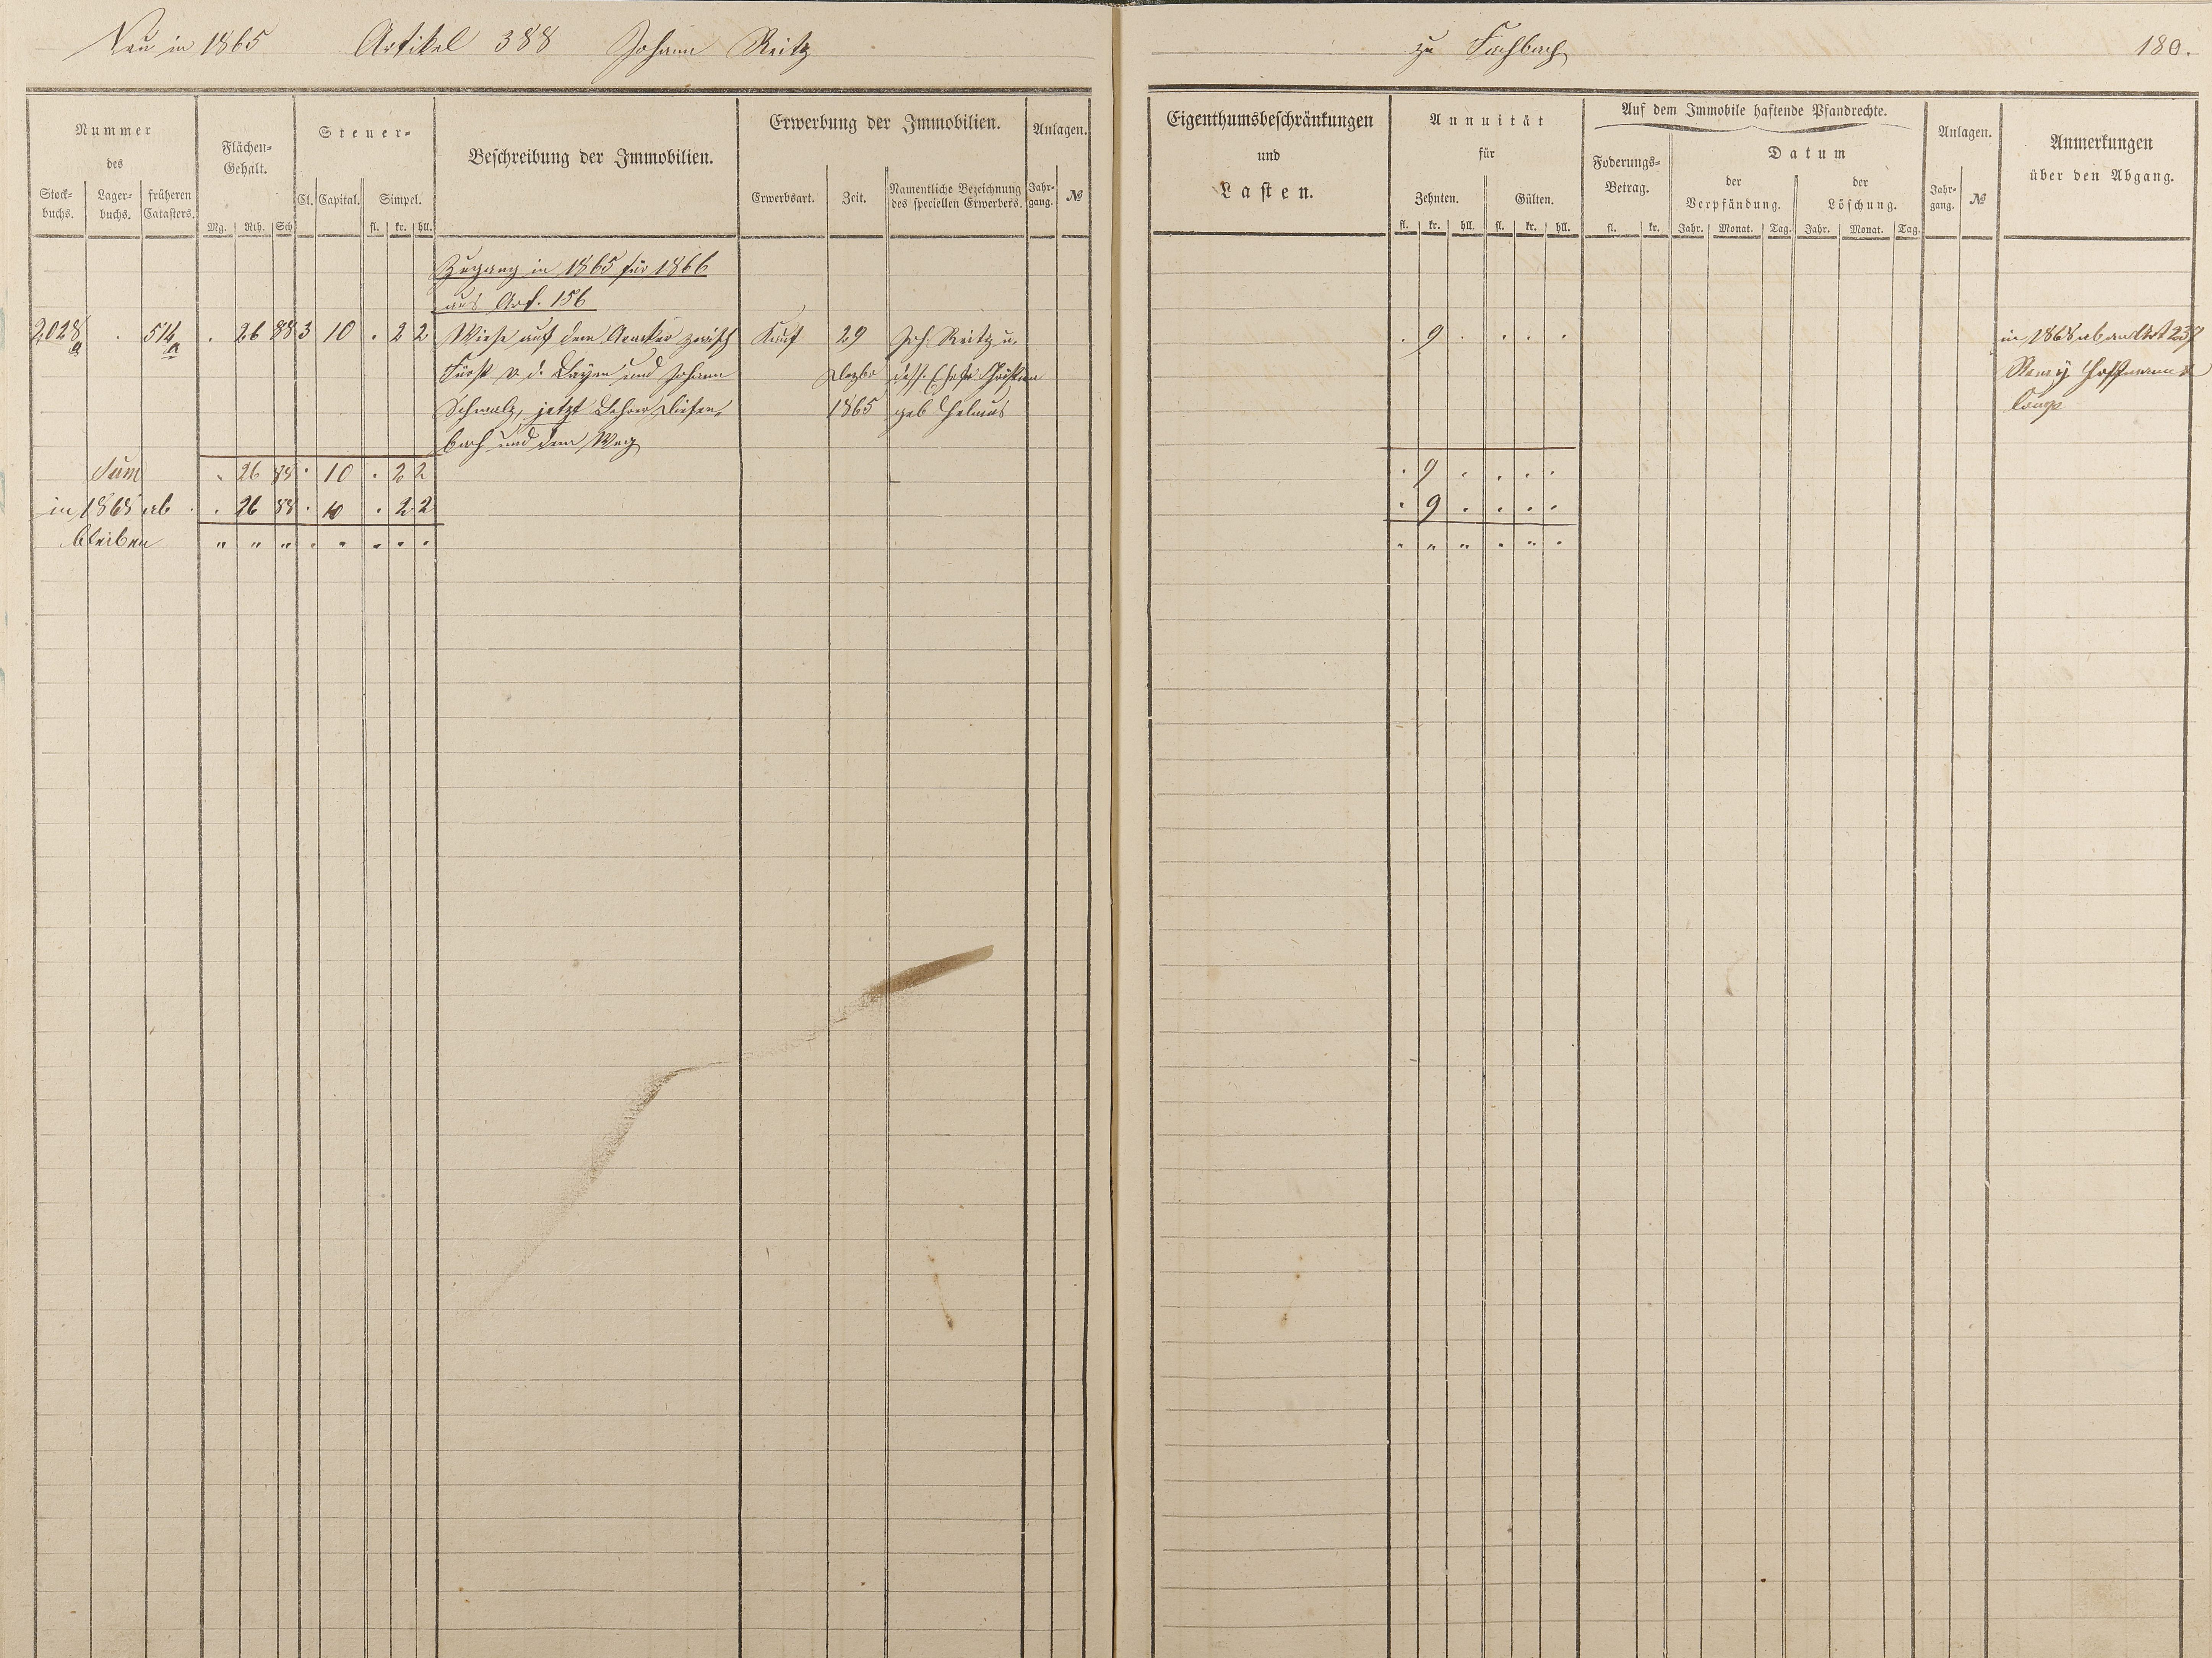 Neu in 1865 Artikel 388 Johann Reitz zu Fachbach 180.
Nummer
des
Stock-
buchs.
Lager-
buchs.
früheren
Catasters.
Flächen-
Gehalt.
Mg. Rth. Sch
Steuer-
Cl. Capital. Simpel.
fl. kr. hll.
Beschreibung der Immobilien.
Erwerbung der Immobilien.
Erwerbsart. Zeit.
Namentliche Bezeichnung
des speciellen Erwerbers.
Anlagen.
Jahr-
gang.
№
Eigenthumsbeschränkungen
und
Lasten.
Annuität
für
Zehnten. Gülten.
fl. kr. hll. fl. kr. hll.
Auf dem Immobile haftende Pfandrechte.
Foderungs-
Betrag.
fl. kr.
Datum
der
Verpfändung.
Jahr. Monat. Tag.
der
Löschung.
Jahr. Monat. Tag.
Anlagen.
Jahr-
gang.
№
Anmerkungen
über den Abgang.
Zugang in 1865 für 1866
aus Art. 156
2028 . 514 . 26 88 3 10 . 2 2 Wiese auf dem zwisch Kauf 29 Joh. Reitz u. . 9 . . . . in 1868 ab an Art 237
a a Fürst v. d. Leyen und Johann Dezbr dess. Ehefr. Hoffmann
Schmalz, jetzt Lehrer Diefen- 1865 geb Helmes
bach und dem Weg
Sum . 26 88 . 10 . 2 2 . 9 . . . .
in 1868 ab . . 26 88 . 10 . 2 2 . 9 . . . .
bleiben " " " . . . . . " " " . " .